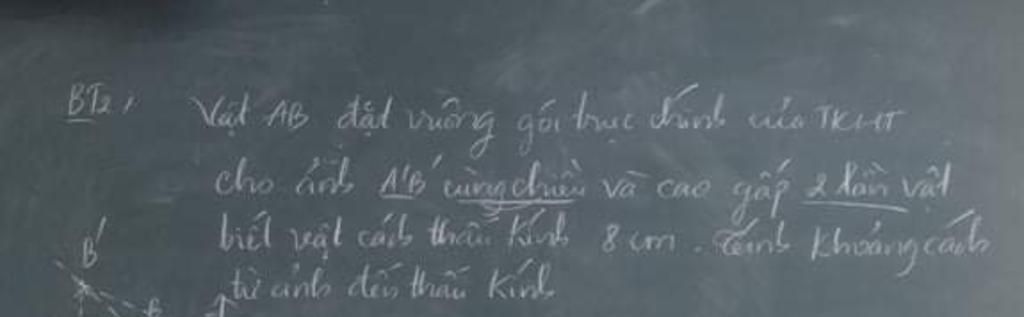 BT2, Vật AB đặt vuông gói trục chính của TKHT
cho ảnh A'B' cùng chiều và cao gấp 2 lần vật
biết vật cách thấu kính 8 cm. Tính khoảng cách
từ ảnh đến thấu kính
B'
B